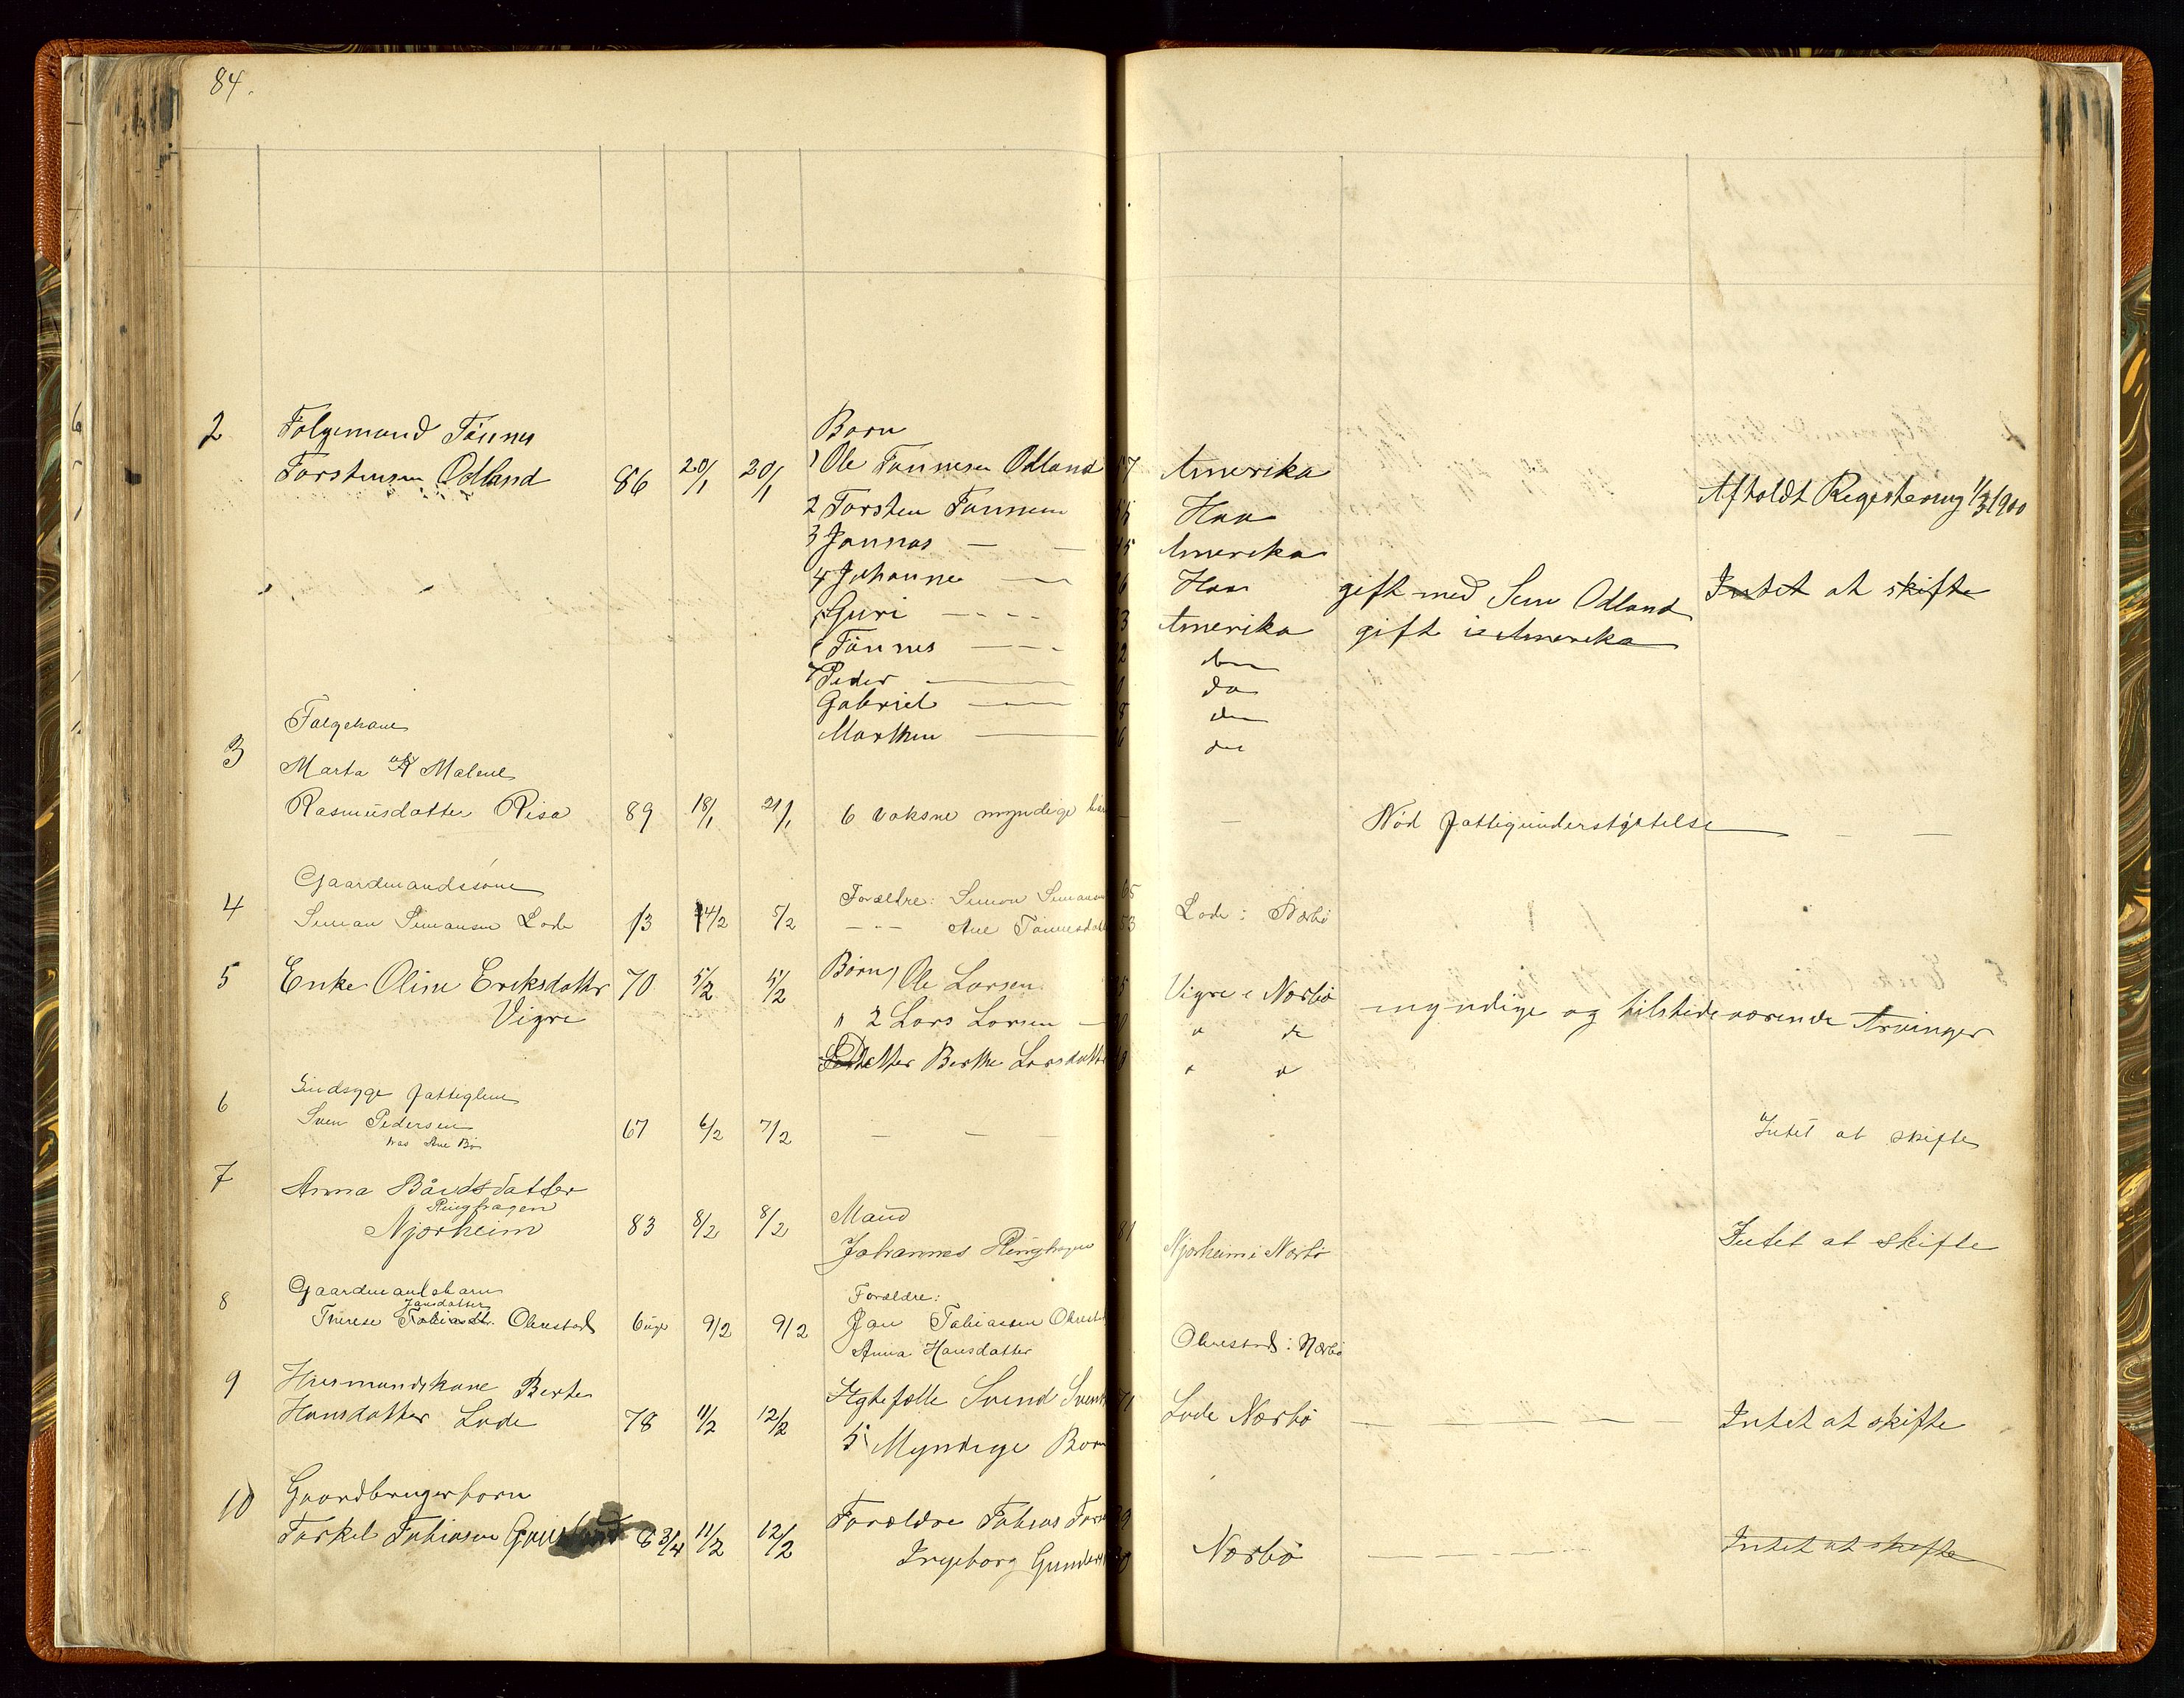 84.
2 Følgemand Tønnes
Torstensen Odland 86 20/1 20/1
Børn
1 Ole Tønnesen Odland 57 Amerika
2 Torsten Tønnesen Haa
3 Jonnas — — 45 Amerika
4 Johanne — Haa gift med Odland
5 Guri - - - - Amerika gift i Amerika
6 Tønnes — - -
7 Peder — do
Gabriel —
Marthin —
Afholdt Registrering 1/3 1900
Intet at skifte
3 Følgekone
Marta Malene
Rasmusdatter Risa 89 18/1 21/1 6 voksne myndige — — Nød Fattigunderstøtelse — —
4 Gaardmandssøn
Simon Simonsen Lode 13 4/2 5/2
Forældre: Simon Simonsen 65 Lode i Nærbø
- - - Ane Tønnesdatter 53
5 Enke Oline Eriksdatter 70 5/2 5/2
Vigre
Børn 1 Ole Larsen Vigre i Nærbø myndige og tilstedeværende Arvinger
" 2 Lars Larsen — " do
Datter Berthe Larsdatter " "
6 Sindsyge Fattiglem
Sven Pedersen 67 6/2 7/2 — — — Intet at skifte
hos Ane Bø
7 Anna Bårdsdatter
Ringhagen
Njærheim 83 8/2 8/2
Mand
Johannes Ringhagen 81 Njærheim i Nærbø Intet at skifte
8 Gaardmandsbarn
Jansdatter
Therese Tobiasdt. Obrestad 6 uger 9/2 9/2
Forældre:
Jan Tobiassen Obrestad
Anna Hansdatter Obrestad i Nærbø
9 Husmandskone Berte
Hansdatter Lode 78 11/2 12/2
Ægtefælle Svend 71 Lode Nærbø — — — — — Intet at skifte
5 Myndige Børn
10 Gaardbrugerbarn
Torkel Tobiasen 6 3/4 11/2 12/2
Forældre Tobias
Ingeborg Nærbø — - - - - — Intet at skifte